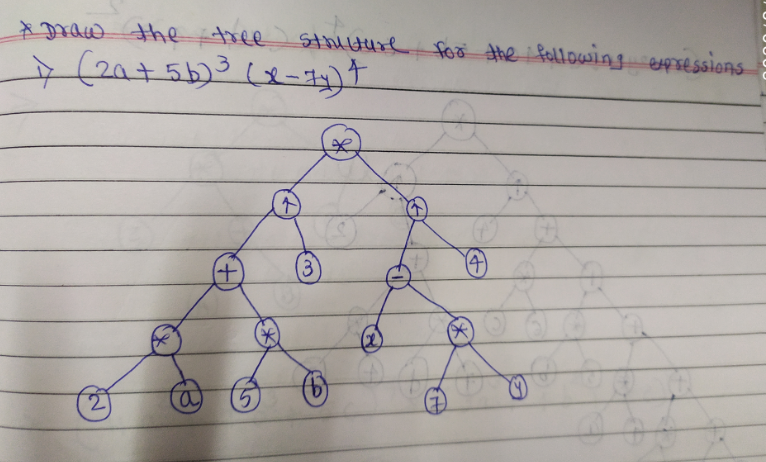 * Draw the tree structure for the following expressions
i) (2a + 5b)³ (x - 7y)⁴
*
↑ ↑
+ 3 - 4
* * x *
2 a 5 b 7 y